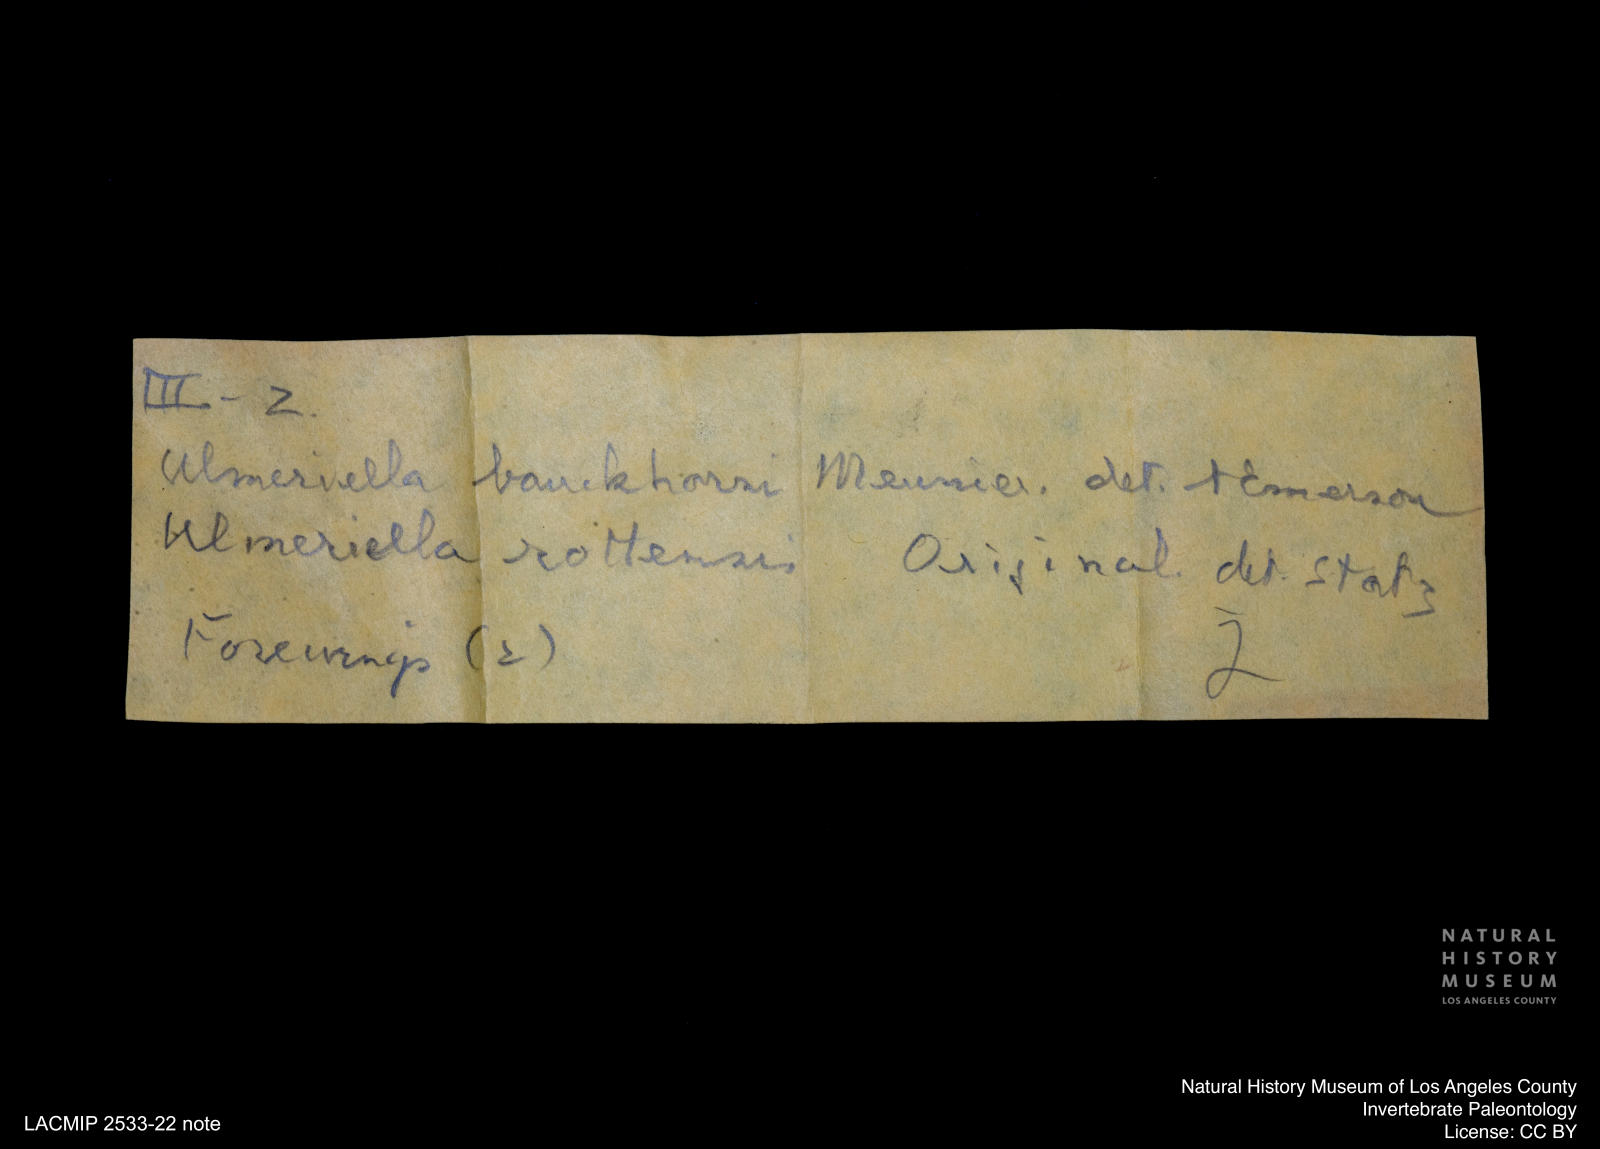 III - 2.
Ulmeriella bauckhorni Meunier. det. Emerson
Ulmeriella rottensis Original det. Statz
Forewings (2)
NATURAL
HISTORY
MUSEUM
LOS ANGELES COUNTY
Natural History Museum of Los Angeles County
Invertebrate Paleontology
License: CC BY
LACMIP 2533-22 note